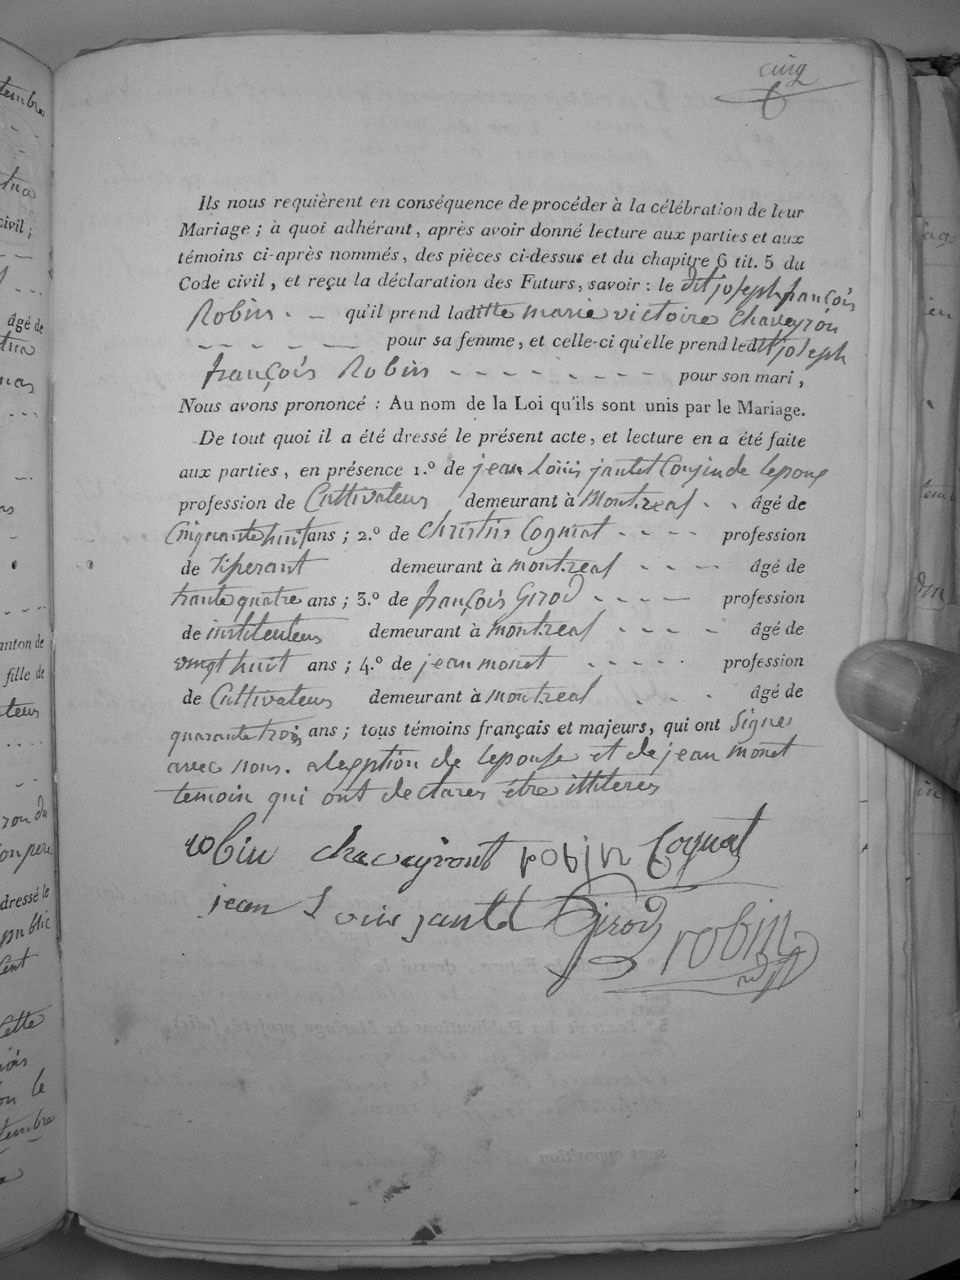 cinq
Ils nous requièrent en conséquence de procéder à la célébration de leur
Mariage ; à quoi adhérant, après avoir donné lecture aux parties et aux
témoins ci-après nommés, des pièces ci-dessus et du chapitre 6 tit. 5 du
Code civil, et reçu la déclaration des Futurs, savoir : le dit joseph françois
Robin . — qu'il prend laditte marie victoire Chaveyron
– – – – — pour sa femme, et celle-ci qu'elle prend ledit joseph
françois Robin – – – – – – – – pour son mari,
Nous avons prononcé : Au nom de la Loi qu'ils sont unis par le Mariage.
De tout quoi il a été dressé le présent acte, et lecture en a été faite
aux parties, en présence 1.º de jean Louis jantet Cousin de lepoux
profession de Cultivateur demeurant à Montreal . . âgé de
Cinquante huit ans ; 2.º de Christin Cogniat - - - - profession
de demeurant à montreal - - - - âgé de
trante quatre ans ; 3.º de françois Girod - - - — profession
de instituteur demeurant à montreal - - - - âgé de
vingt huit ans ; 4.º de jean monet - - - - - profession
de Cultivateur demeurant à montreal - . . âgé de
quarante trois ans ; tous témoins français et majeurs, qui ont signe
avec nous. a lexption de lepouse et de jean monet
temoin qui ont declares être illiteres
robin chaveyront robin Cognat
jean Louis jantet Girod robin
tembre
civil ;
âgé de
anton de
fille de
teur
dressé le
public
Cette
on le
tembre